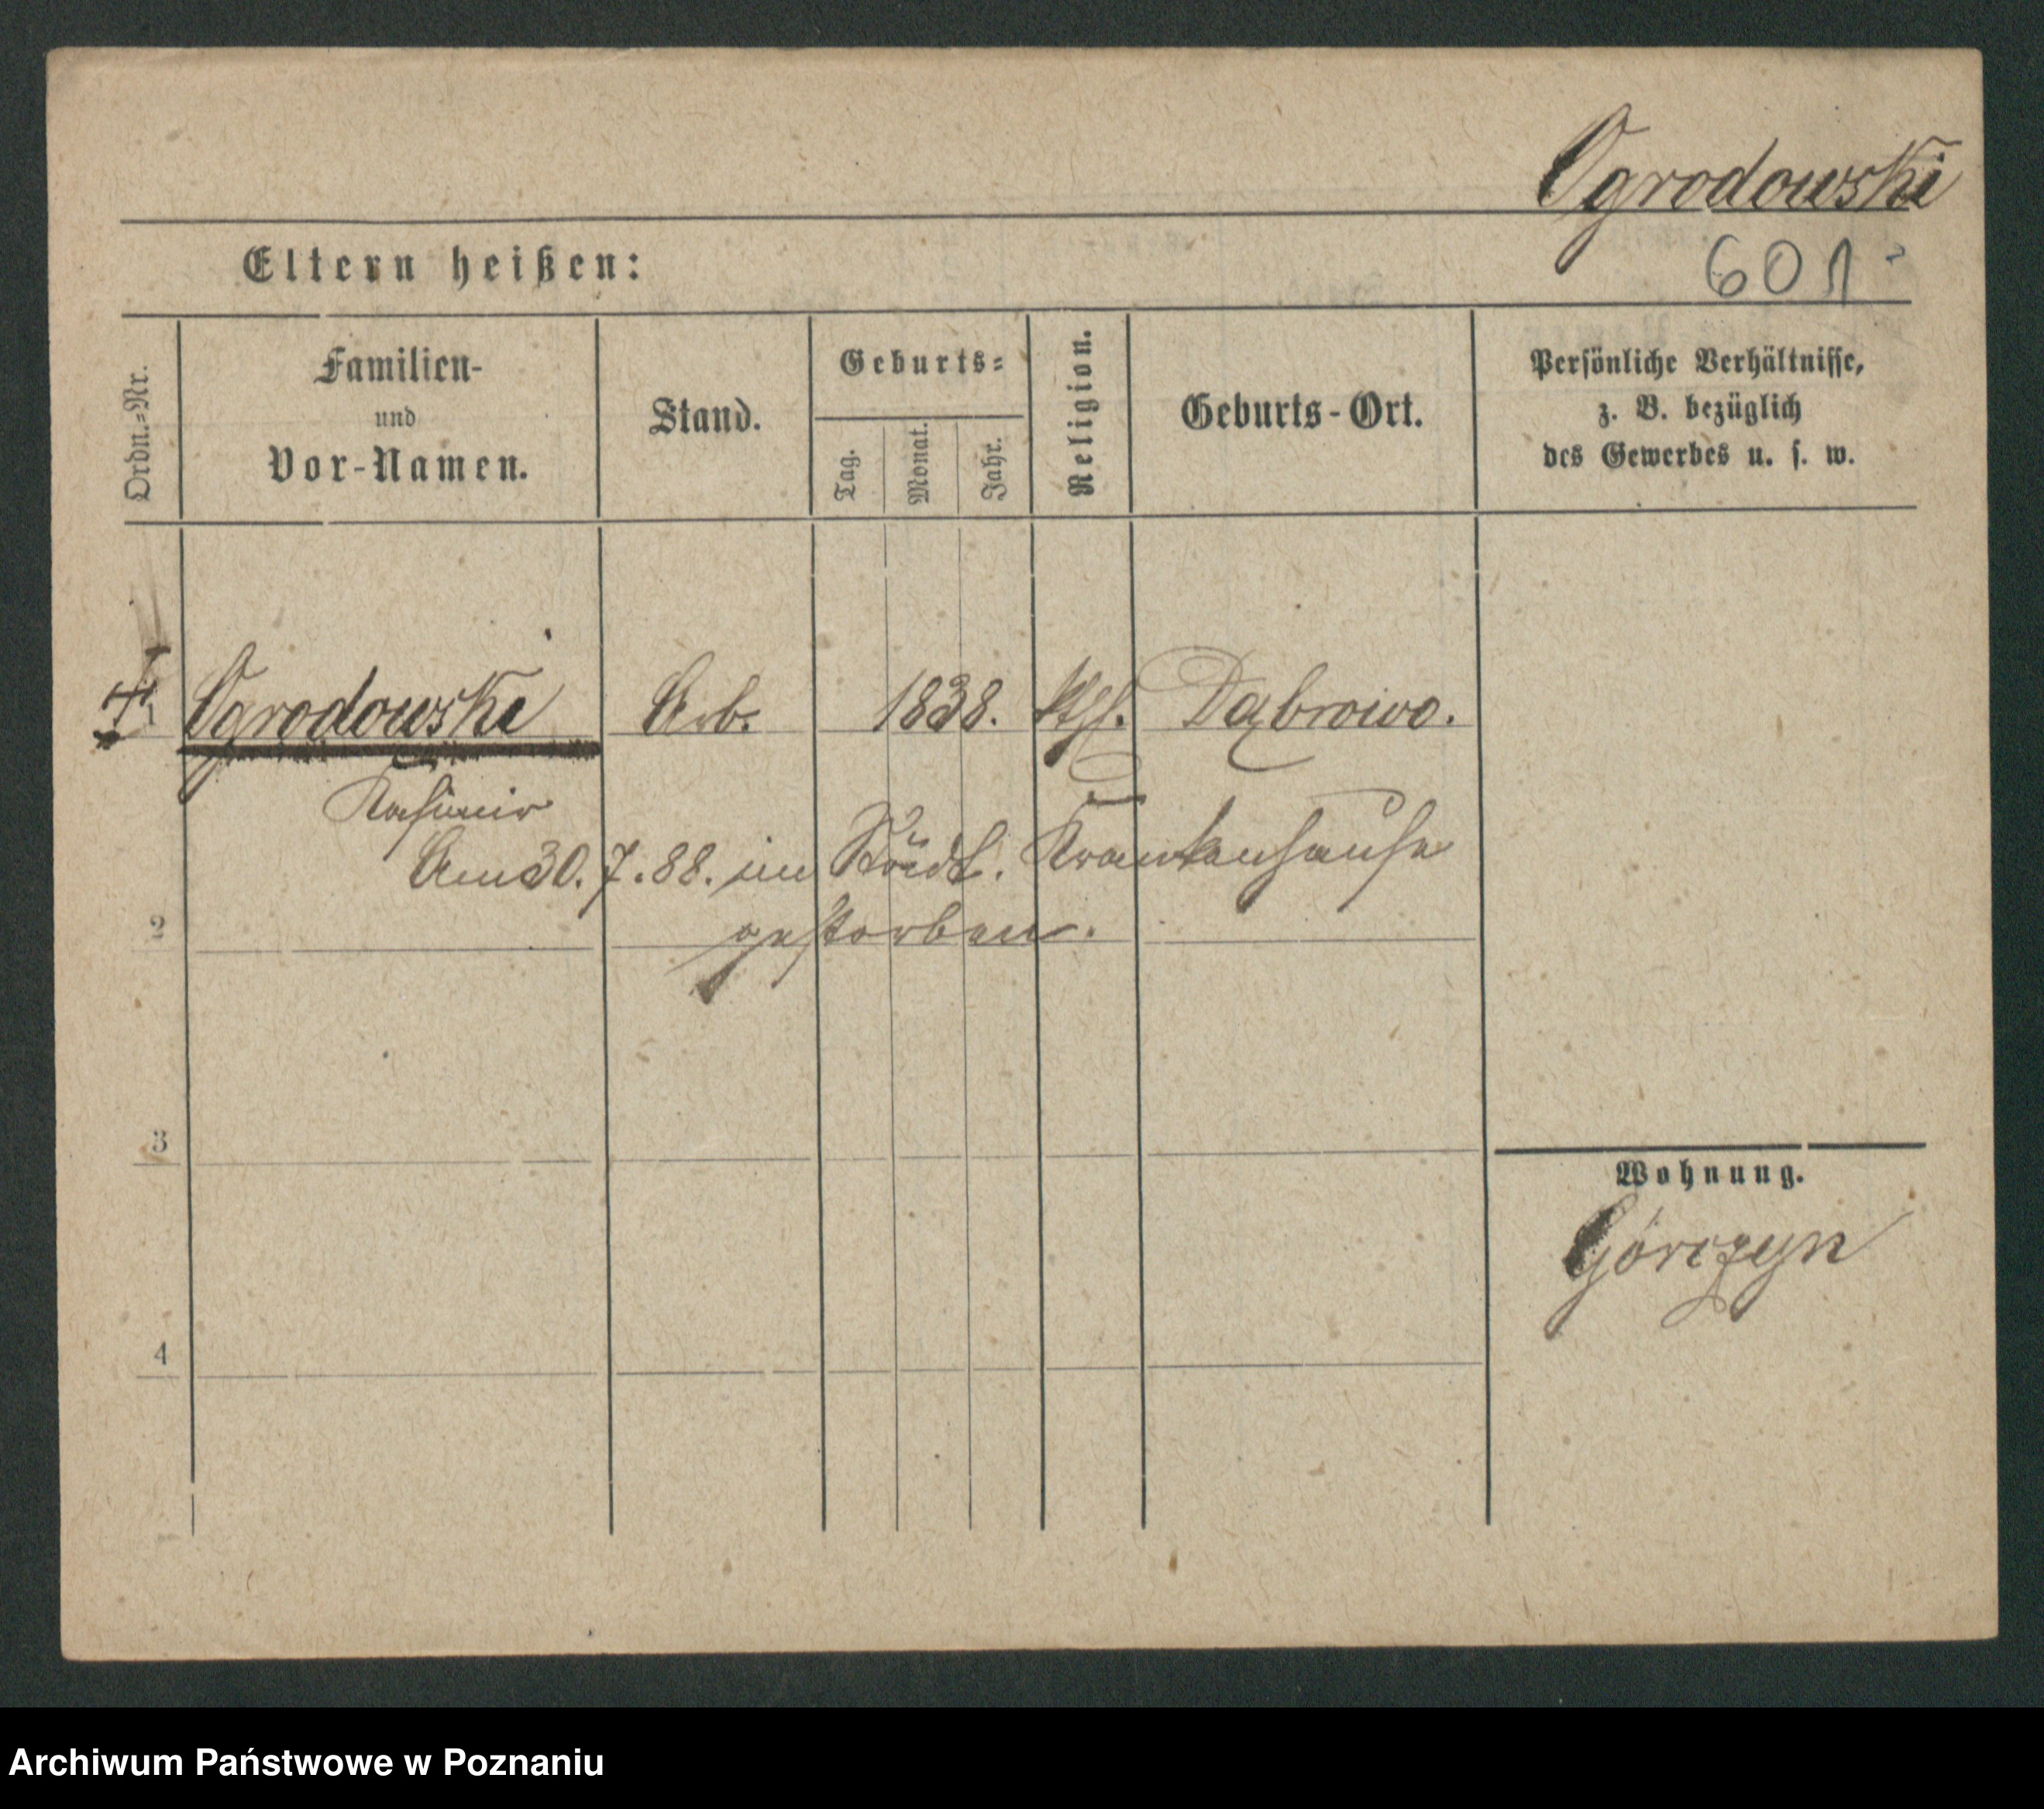 Ogrodowski
601
Eltern heißen:
Ordn.-Nr.
Familien-
und
Vor-Namen.
Stand.
Geburts-
Tag.
Monat.
Jahr.
Religion.
Geburts-Ort.
Persönliche Verhältnisse,
z. B. bezüglich
des Gewerbes u. s. w.
1 Ogrodowski Arb. 1838. kth. Dąbrowo.
Kasimir
Am 30.7.88. im Städt. Krankenhause
2
gestorben.
3
Wohnung.
Górczyn
4
Archiwum Państwowe w Poznaniu